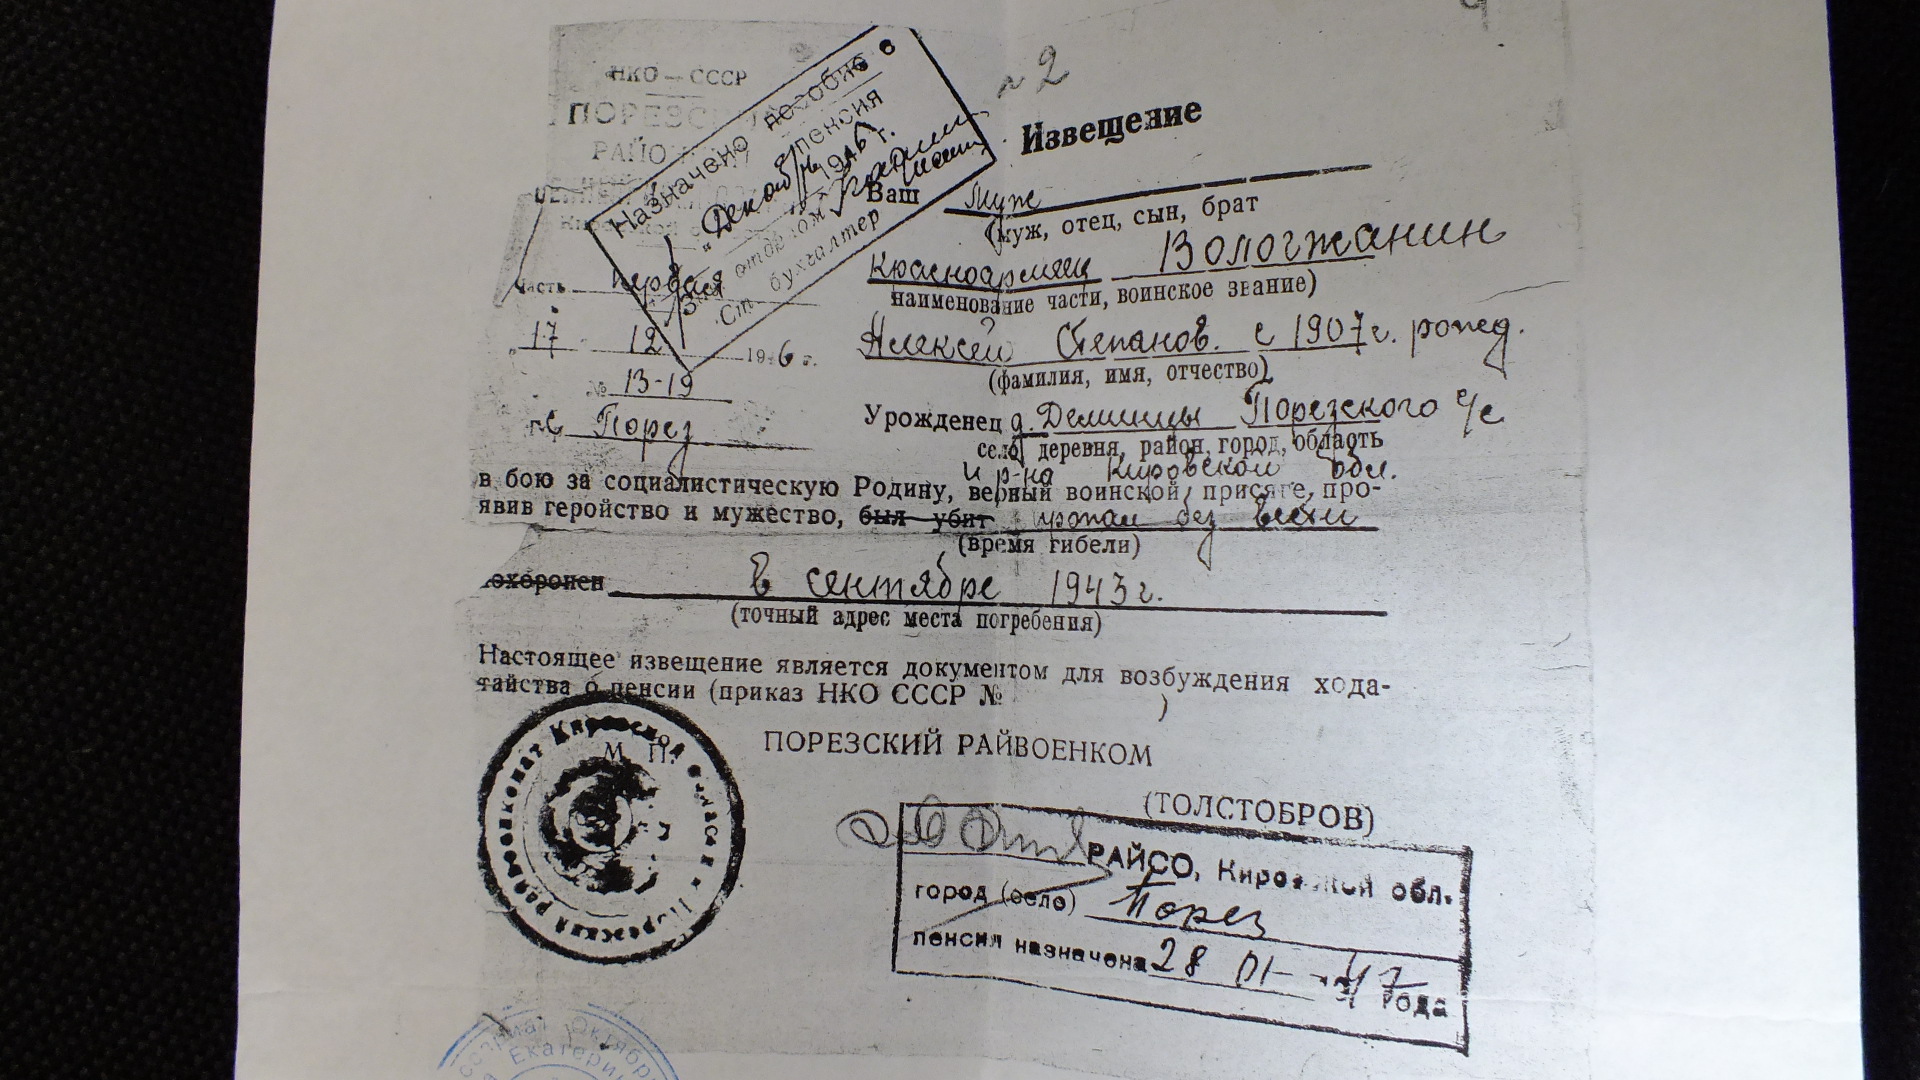 НКО — СССР
ПОРЕЗС
РАЙО
Назначено пособие
пенсия
1946 г.
Ст. бухгалтер
№ 2
Извещение
Ваш муж
(муж, отец, сын, брат
Красноармеец Вологжанин
наименование части, воинское звание)
Часть первая
17 12 1946 г.
№ 13-19
с Порез
Алексей Степанов. с 1907г. рожд.
(фамилия, имя, отчество)
Урожденец д. Порезского с/с
село, деревня, район, город, область
и р-на Кировской обл.
в бою за социалистическую Родину, верный воинской присяге, про-
явив геройство и мужество, был убит пропал без вести
(время гибели)
похоронен в сентябре 1943г.
(точный адрес места погребения)
Настоящее извещение является документом для возбуждения хода-
тайства о пенсии (приказ НКО СССР № )
М. П.
ПОРЕЗСКИЙ РАЙВОЕНКОМ
(ТОЛСТОБРОВ)
Порезский райвоенкомат Кировской области
РАЙСО, Кировской обл.
город (село) Порез
пенсия назначена 28 01 47 года
Октябр
Екатерин